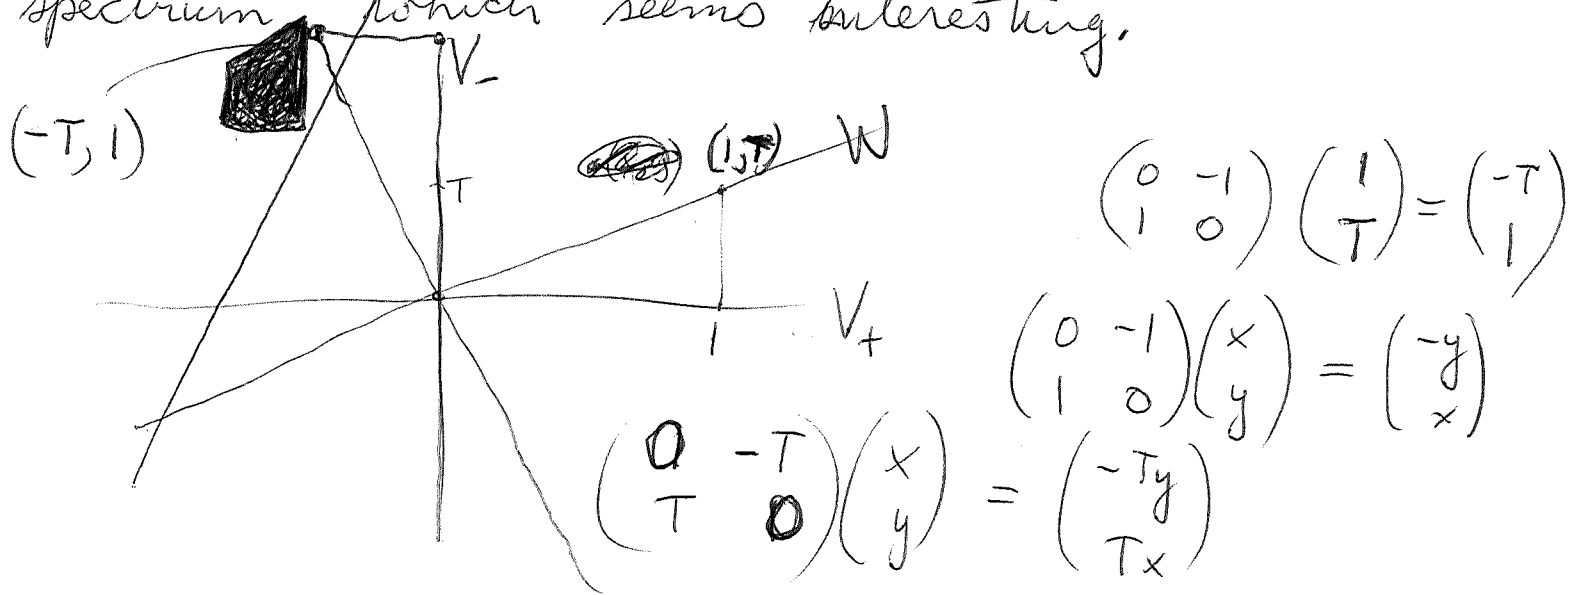 spectrum, which seems interesting.
V_-
(-T, 1)
(1, T) W
T
\begin{pmatrix} 0 & -1 \\ 1 & 0 \end{pmatrix} \begin{pmatrix} 1 \\ T \end{pmatrix} = \begin{pmatrix} -T \\ 1 \end{pmatrix}
1 V_+
\begin{pmatrix} 0 & -1 \\ 1 & 0 \end{pmatrix} \begin{pmatrix} x \\ y \end{pmatrix} = \begin{pmatrix} -y \\ x \end{pmatrix}
\begin{pmatrix} 0 & -T \\ T & 0 \end{pmatrix} \begin{pmatrix} x \\ y \end{pmatrix} = \begin{pmatrix} -Ty \\ Tx \end{pmatrix}